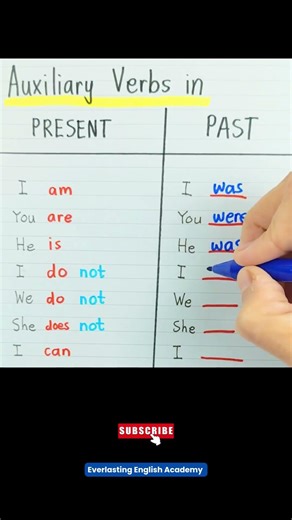 Auxiliary Verbs in
PRESENT PAST
I am I was
You are You were
He is He was
I do not I
We do not We
She does not She
I can I
SUBSCRIBE
Everlasting English Academy